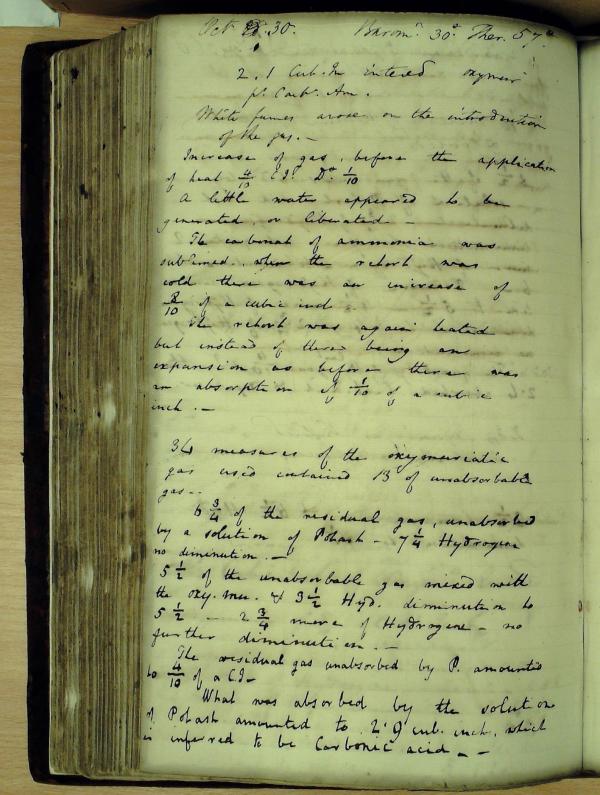 Oct 30. Barom.r 30.2 Ther. 57.o
2.1 Cub. In intered oxymur
pr. Carb. Am.
White fumes arose on the introduction
of the gas. —
Increase of gas, before the application
of heat 4/10 C.I. Do. 1/10
A little water appeared to be
generated or liberated —
The carbonat of ammonia was
sublimed. when the retort was
cold there was an increase of
8/10 of a cubic inch
The retort was again heated
but instead of there being an
expansion as before there was
an absorption of 1/10 of a cubic
inch. —
34 measures of the oxymuriatic
gas used contained 13 of unabsorbable
gas. —
6 3/4 of the residual gas, unabsorbed
by a solution of Potash — 7 1/4 Hydrogene
no diminution. —
5 1/2 of the unabsorbable gas mixed with
the oxy. mu. & 3 1/2 Hyd. diminution to
5 1/2 — 2 3/4 more of Hydrogene — no
further diminution. —
The residual gas unabsorbed by P. amounted
to 4/10 of a C.I —
What was absorbed by the solution
of Potash amounted to 2.9 cub. inch. which
is inferred to be Carbonic acid — —